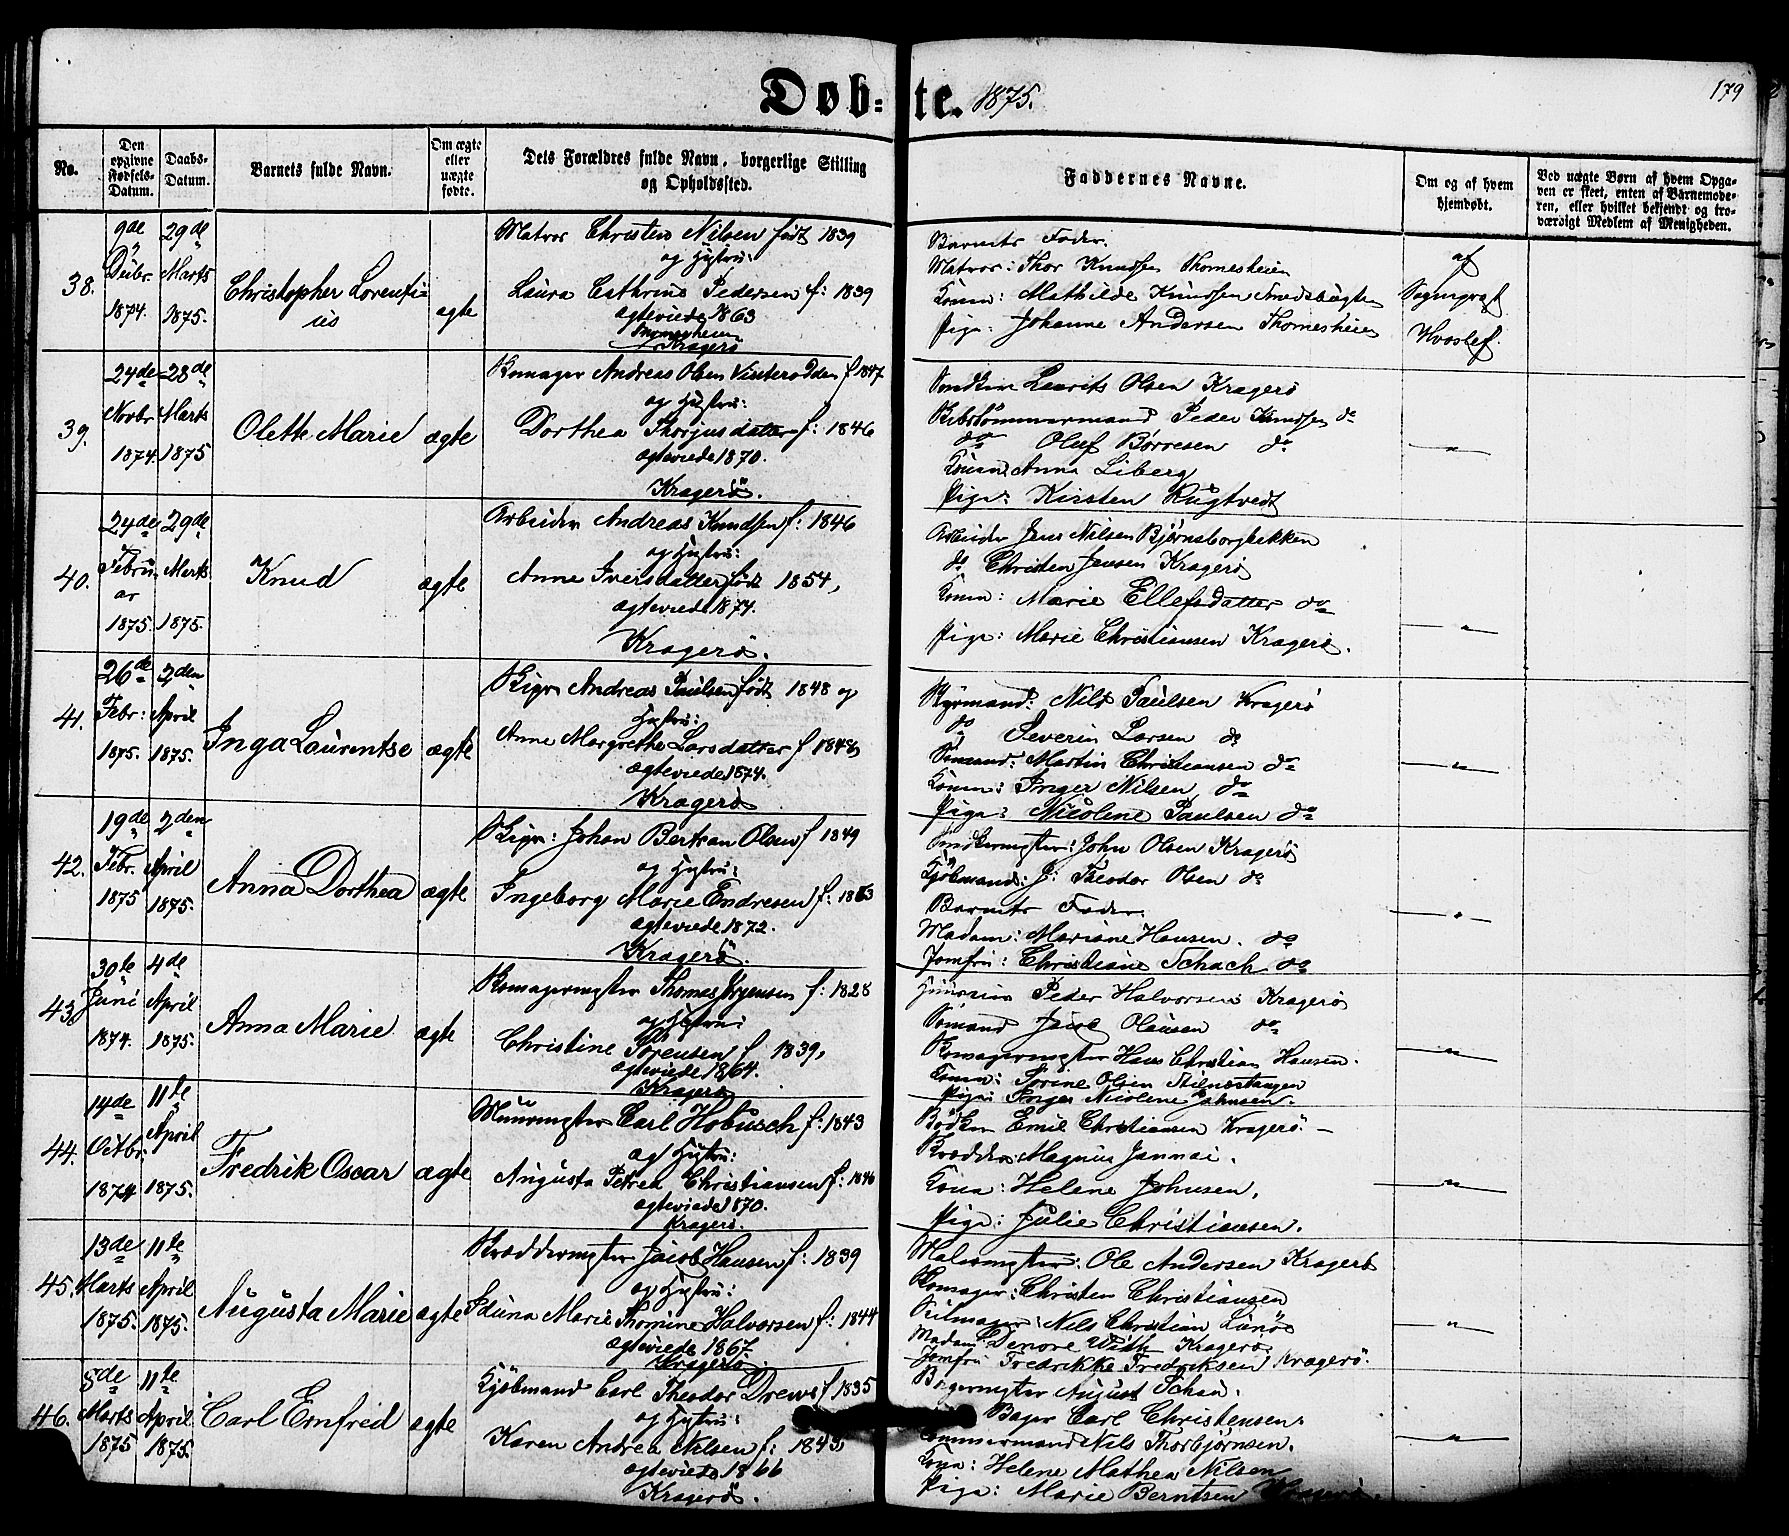 Døb-te. 1875.
179
No.
Den opgivne Fødsels-Datum.
Daabs-Datum.
Barnets fulde Navn.
Om ægte eller uægte født.
Dets Forældres fulde Navn, borgerlige Stilling og Opholdssted.
Faddernes Navne.
Om og af hvem hjemdøbt.
Ved uægte Børn af hvem Opga-
ven er skeet, enten af Barnemode-
ren, eller hvilket bekjendt og tro-
værdigt Medlem af Menigheden.
38.
9de Decbr. 1874.
29de Marts 1875.
Christopher Lorenti-
us
ægte
Matros Christen Nilsen født 1839
og Hustru:
Laura Cathrine Pedersen f: 1839
ægteviede 1863
Kragerö
Barnets Fader.
Matros: Thor Knudsen Thomesheien
Kone: Mathilde Knudsen Smedsbugten
Pige: Johanne Andersen Thomesheien
af
Sognepræst
Hvoslef.
39.
24de Novbr 1874.
28de Marts 1875
Olette Marie
ægte
Andreas Olsen Vinterodden f 1847
og Hustru:
Dorthea Thorjusdatter f: 1846
ægteviede 1870.
Kragerö.
Laurits Olsen Kragerö
Skibstömmermand Peder Knudsen do
do Oluf Börresen do
Kone Anna Liberg
Pige: Kirsten Rugtvedt
"
40.
24de Februar 1875.
29de Marts 1875.
Knud
ægte
Arbeider Andreas Knudsen f: 1846
og Hustru:
Anne Iversdatter født 1854,
ægteviede 1874.
Kragerö.
Arbeider Jens Nilsen Björnsborgbakken
do Christen Jensen Kragerö
Kone: Marie Ellefsdatter do
Pige: Marie Christiansen Kragerö.
"
41.
26de Febr: 1875.
2den April 1875.
Inga Laurentse
ægte
Andreas Paulsen født 1848 og
Hustru:
Anne Margrethe Larsdatter f 1848,
ægteviede 1874.
Kragerö
Styrmand: Nils Paulsen Kragerö
do Severin Larsen do
Sömand: Martin Christiansen do
Kone: Inger Nilsen, do
Pige: Nicoline Paulsen do
"
42.
19de Febr. 1875
2den April 1875.
Anna Dorthea
ægte
Johan Bertran Olsen f 1849
og Hustru:
Ingeborg Marie Endresen f: 1853
ægteviede 1872.
Kragerö.
John Olsen Kragerö
Kjöbmand: J: Theodor Olsen do
Barnets Fader.
Madam: Mariane Hansen. do
Jomfru: Christiane Schach do
"
43.
30te Juni 1874.
4de April 1875.
Anna Marie
ægte
Thomas Jörgensen f: 1828
og Hustru:
Christine Sörensen f 1839,
ægteviede 1864.
Kragerö
Peder Halvorsen Kragerö
Sömand Jacob Olausen do
Hans Christian Hansen.
Kone: Sörine Olsen Stilnestangen
Pige: Inger Nicoline Johnsen.
"
44.
14de Octbr. 1874
11te April 1875.
Fredrik Oscar
ægte
Muurmester Carl Hobusch f: 1843
og Hustru:
Augusta Petrea Christiansen f: 1846
ægteviede 1870.
Kragerö.
Bödker Emil Christiansen Kragerö.
Skrædder: Magnus Janmai.
Kone: Helene Johnsen.
Pige: Julie Christiansen.
"
45.
13de Marts 1875.
11te April 1875.
Augusta Marie
ægte
Skræddermester Jacob Hansen f: 1839
og Hustru:
Iduna Marie Thomine Halvorsen f: 1844
ægteviede 1867.
Kragerö.
Malermester: Ole Andersen Kragerö
Skomager: Christen Christiansen
Seilmager: Nils Christian Lunöe
Madam: Denore With Kragerö
Jomfru Fredrikke Fredriksen Kragerö.
"
46.
8de Marts 1875
11te April 1875.
Carl Ernfred
ægte
Kjöbmand Carl Theodor Drews f 1835
og Hustru:
Karen Andrea Nilsen f: 1843,
ægteviede 1866
Kragerö.
Bagermester August Schau.
Bager Carl Christensen.
Tömmermand Nils Thorbjörnsen.
Kone: Helene Mathea Nilsen
Pige: Marie Berntsen
"